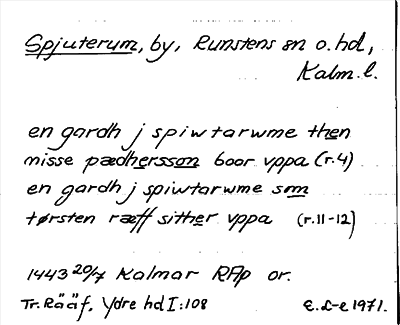 Spjuterum, by, Runstens sn o. hd,
Kalm. l.
en gardh j spiwtarwme then
misse pædhersson boor vppa (r. 4)
en gardh j spiwtarwme som
tørsten ræff sither vppa (r. 11-12)
1443 20/7 Kalmar RAp or.
Tr. Rääf, Ydre hd I:108 E. L-e 1971.